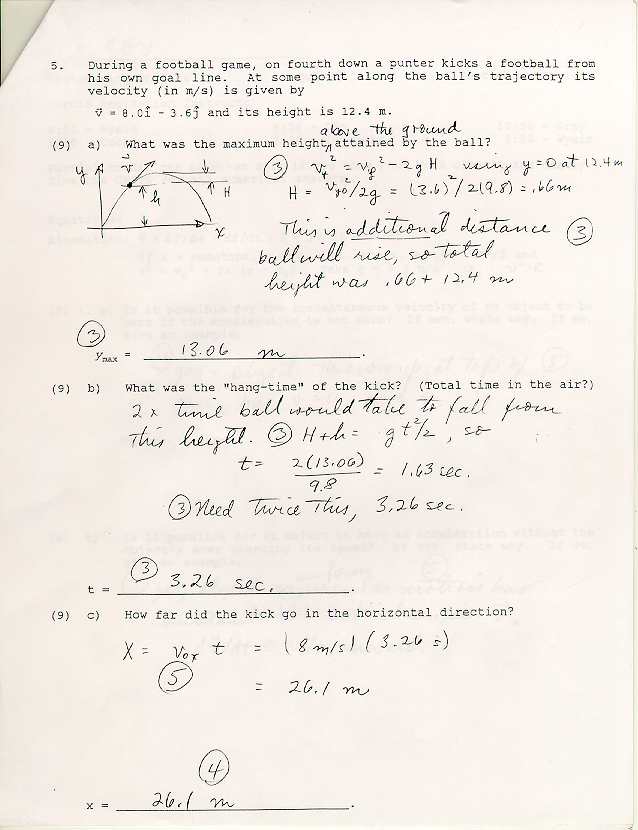 5. During a football game, on fourth down a punter kicks a football from
his own goal line. At some point along the ball's trajectory its
velocity (in m/s) is given by
v⃗ = 8.0î - 3.6ĵ and its height is 12.4 m.
above the ground
(9) a) What was the maximum height, attained by the ball?
y v⃗ h H x
③ v_y² = v_f² - 2gH using y=0 at 12.4m
H = v_yo²/2g = (3.6)²/2(9.8) = .66m
This is additional distance ③
ball will rise, so total
height was .66 + 12.4 m
③
y_max = 13.06 m.
(9) b) What was the "hang-time" of the kick? (Total time in the air?)
2 x time ball would take to fall from
this height. ③ H+h = gt²/2, so
t = 2(13.06)/9.8 = 1.63 sec.
③ Need twice this, 3.26 sec.
③
t = 3.26 sec.
(9) c) How far did the kick go in the horizontal direction?
X = v_ox t = (8 m/s)(3.26 s)
⑤ = 26.1 m
④
x = 26.1 m.